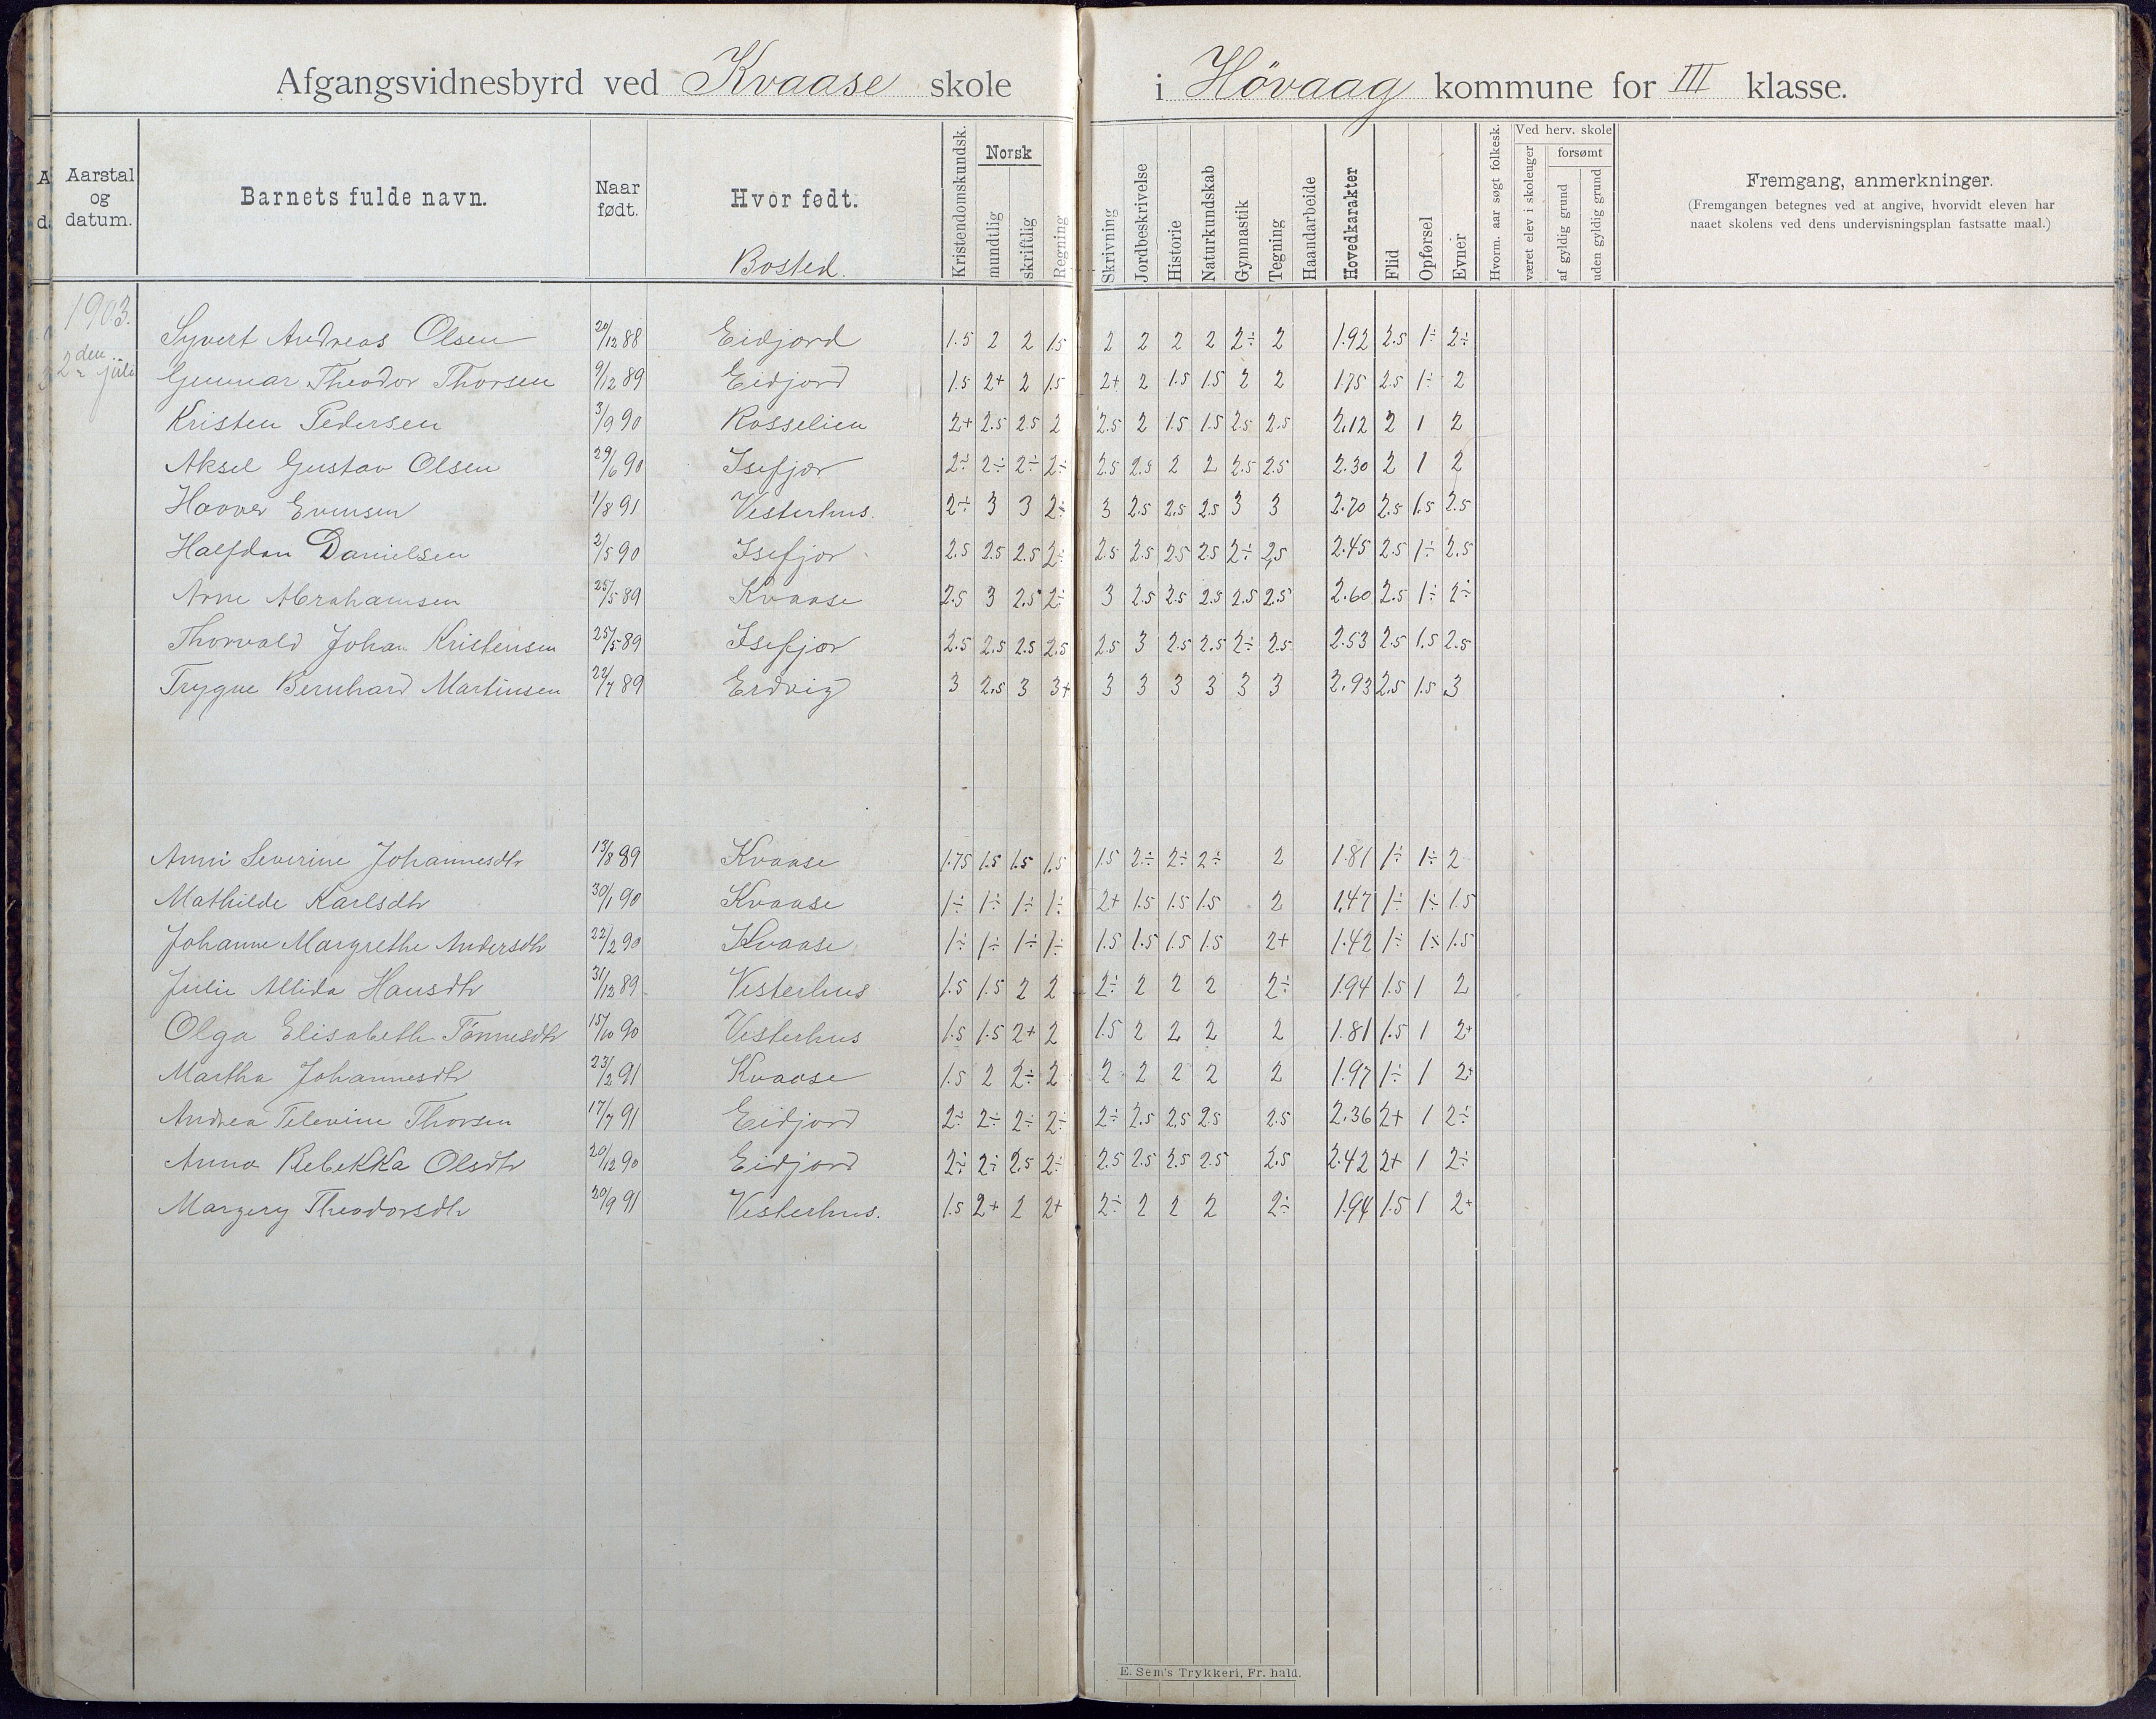 Afgangsvidnesbyrd ved Kvaase skole i Hövaag kommune for III klasse.
A d. Aarstal og datum. Barnets fulde navn. Naar født. Hvor født. Bosted. Kristendomskundsk. Norsk mundtlig skriftlig Regning Skrivning Jordbeskrivelse Historie Naturkundskab Gymnastik Tegning Haandarbeide Hovedkarakter Flid Opførsel Evner Hvorm. aar søgt folkesk. Ved herv. skole været elev i skoleuger forsømt af gyldig grund uden gyldig grund Fremgang, anmerkninger.
(Fremgangen betegnes ved at angive, hvorvidt eleven har
naaet skolens ved dens undervisningsplan fastsatte maal.)
1903.
2den juli
Syvert Andreas Olsen 20/12 88 Eidjord 1.5 2 2 1.5 2 2 2 2 2÷ 2 1.92 2.5 1÷ 2÷
Gunnar Theodor Thorsen 9/12 89 Eidjord 1.5 2+ 2 1.5 2+ 2 1.5 1.5 2 2 1.75 2.5 1÷ 2
Kristen Pedersen 3/9 90 Rosselien 2+ 2.5 2.5 2 2.5 2 1.5 1.5 2.5 2.5 2.12 2 1 2
Aksel Gustav Olsen 29/6 90 Isefjær 2÷ 2÷ 2÷ 2÷ 2.5 2.5 2 2 2.5 2.5 2.30 2 1 2
Haaver Evensen 1/8 91 Vesterhus. 2÷ 3 3 2÷ 3 2.5 2.5 2.5 3 3 2.70 2.5 1.5 2.5
Halfdan Danielsen 2/5 90 Isefjær 2.5 2.5 2.5 2÷ 2.5 2.5 2.5 2.5 2÷ 2.5 2.45 2.5 1÷ 2.5
Arne Abrahamsen 25/5 89 Kvaase 2.5 3 2.5 2÷ 3 2.5 2.5 2.5 2.5 2.5 2.60 2.5 1÷ 2÷
Thorvald Johan Kristensen 25/5 89 Isefjær 2.5 2.5 2.5 2.5 2.5 3 2.5 2.5 2÷ 2.5 2.53 2.5 1.5 2.5
Trygve Bernhard Martinsen 22/7 89 Erdvig 3 2.5 3 3+ 3 3 3 3 3 3 2.93 2.5 1.5 3
Anni Severine Johannesdtr 13/8 89 Kvaase 1.75 1.5 1.5 1.5 1.5 2÷ 2÷ 2÷ 2 1.81 1÷ 1÷ 2
Mathilde Karlsdtr 30/1 90 Kvaase 1÷ 1÷ 1÷ 1÷ 2+ 1.5 1.5 1.5 2 1.47 1÷ 1÷ 1.5
Johanne Margrethe Andersdtr 22/2 90 Kvaase 1÷ 1÷ 1÷ 1÷ 1.5 1.5 1.5 1.5 2+ 1.42 1÷ 1÷ 1.5
Julie Allida Hansdtr 31/12 89 Vesterhus 1.5 1.5 2 2 2÷ 2 2 2 2÷ 1.94 1.5 1 2
Olga Elisabeth Tönnesdtr 15/10 90 Vesterhus 1.5 1.5 2+ 2 1.5 2 2 2 2 1.81 1.5 1 2+
Martha Johannesdtr 23/2 91 Kvaase 1.5 2 2÷ 2 2 2 2 2 2 1.97 1÷ 1 2+
Andrea Televine Thorsen 17/7 91 Eidjord 2÷ 2÷ 2÷ 2÷ 2÷ 2.5 2.5 2.5 2.5 2.36 2+ 1 2÷
Anna Rebekka Olsdtr 20/12 90 Eidjord 2÷ 2÷ 2.5 2÷ 2.5 2.5 2.5 2.5 2.5 2.42 2+ 1 2÷
Margery Theodorsdtr 20/9 91 Vesterhus. 1.5 2+ 2 2+ 2÷ 2 2 2 2÷ 1.94 1.5 1 2+
E. Sem's Trykkeri, Fr. hald.